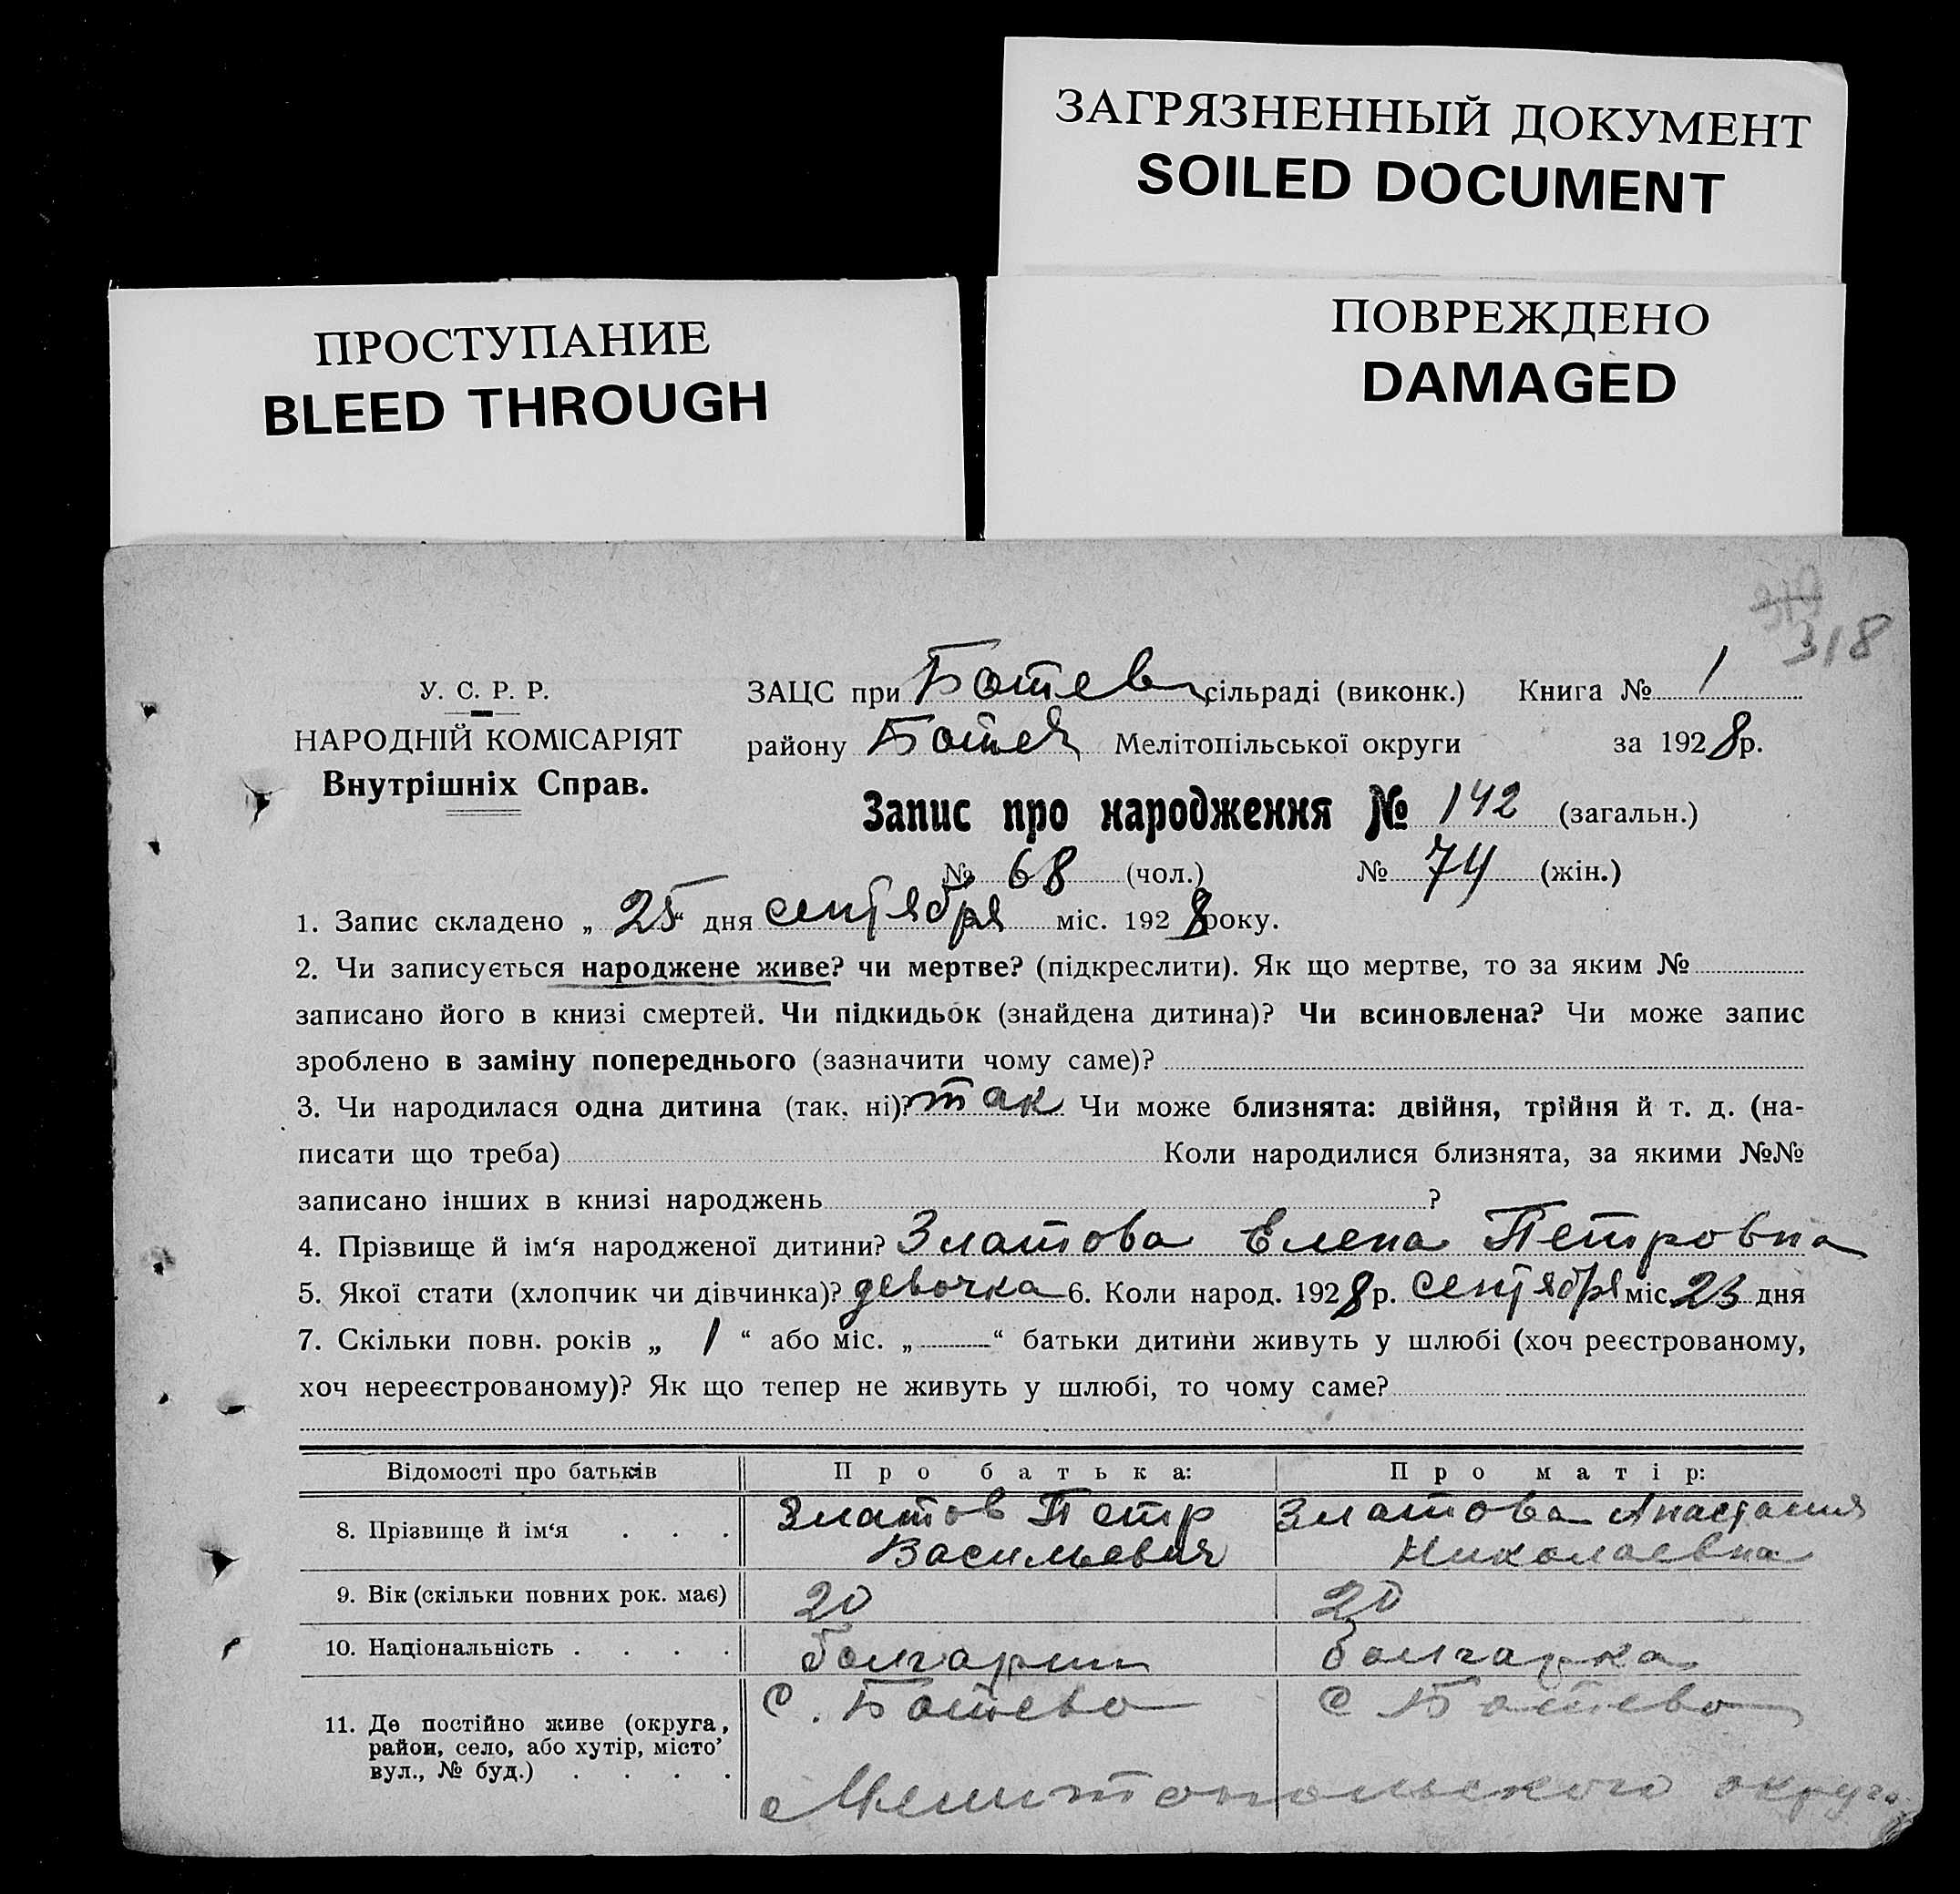 ЗАГРЯЗНЕННЫЙ ДОКУМЕНТ
SOILED DOCUMENT
ПРОСТУПАНИЕ
BLEED THROUGH
ПОВРЕЖДЕНО
DAMAGED
318
У. С. Р. Р.
НАРОДНІЙ КОМІСАРІЯТ
Внутрішніх Справ.
ЗАЦС при Ботев сільраді (виконк.) Книга № 1
району Ботев Мелітопільської округи за 1928р.
Запис про народження № 142 (загальн.)
№ 68 (чол.) № 74 (жін.)
1. Запис складено „25“ дня сентября міс. 1928 року.
2. Чи записується народжене живе? чи мертве? (підкреслити). Як що мертве, то за яким №
записано його в книзі смертей. Чи підкидьок (знайдена дитина)? Чи всиновлена? Чи може запис
зроблено в заміну попереднього (зазначити чому саме)?
3. Чи народилася одна дитина (так, ні)? так Чи може близнята: двійня, трійня й т. д. (на-
писати що треба) Коли народилися близнята, за якими №№
записано інших в книзі народжень ?
4. Прізвище й ім‘я народженої дитини? Златова Елена Петровна
5. Якої стати (хлопчик чи дівчинка)? девочка 6. Коли народ. 1928 р. сентября міс. 23 дня
7. Скільки повн. років „ 1 “ або міс. „ “ батьки дитини живуть у шлюбі (хоч реєстрованому,
хоч нереєстрованому)? Як що тепер не живуть у шлюбі, то чому саме?
Відомості про батьків Про батька: Про матір:
8. Прізвище й ім‘я . . . Златов Петр Васильевич Златова Анастасия Николаевна
9. Вік (скільки повних рок. має) 20 20
10. Національність . . . . болгарин болгарка
11. Де постійно живе (округа, район, село, або хутір, місто’ вул., № буд.) . . . . С. Ботево С Ботево
Мелитопольского округа